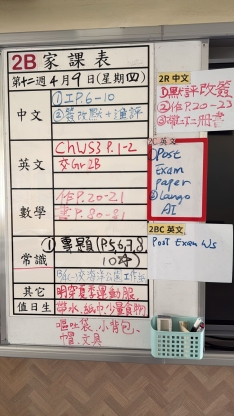 2B 家課表
第十二週4月9日(星期四)
中文
①工P.6-10
②簽改默+追評
英文
Ch US3 P.1-2
交Gr2B
數學
作P.20-21
書P.80-81
常識
①專題(P.5,6,7,8
其它
明穿夏季運動服
值日生
帶水,紙巾,少量食物
嘔吐袋、小背包、
帽、文具
2R 中文
①默評改簽
②作P.20-23
2C 英文
①Post
Exam
paper
②Lango
AI
2BC 英文
Post Exam Ws